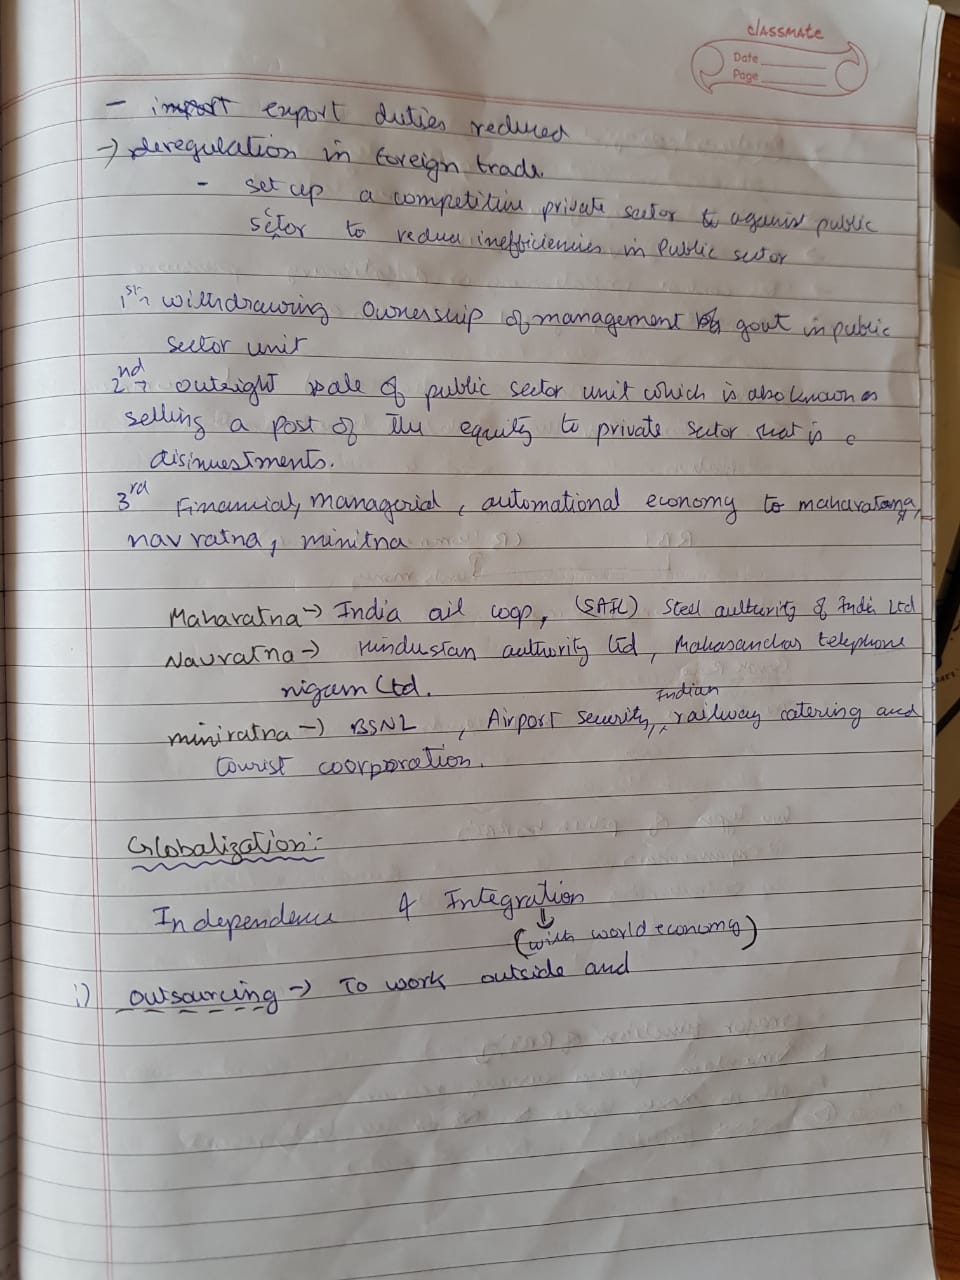 classmate
Date
Page
- import export duties reduced
→ deregulation in foreign trade.
- set up a competitive private sector to against public
sector to reduce inefficiencies in Public sector
1st → withdrawing ownership of management by govt in public
sector unit
2nd → outright sale of public sector unit which is also known as
selling a post of the equity to private sector that is c
disinvestments.
3rd Financial, managerial, automational economy to maharatana,
nav ratna, minitna
Maharatna → India oil coop, (SAIL) Steel aulturity of India Ltd
Navratna → Hindustan authority Ltd, Mahasanchar telephone
nigam Ltd.
miniratna → BSNL, Airport security, Indian railway catering and
tourist coorporation.
Globalization :-
Independence & Integration
↓
(with world economy)
i) outsourcing → To work outside and